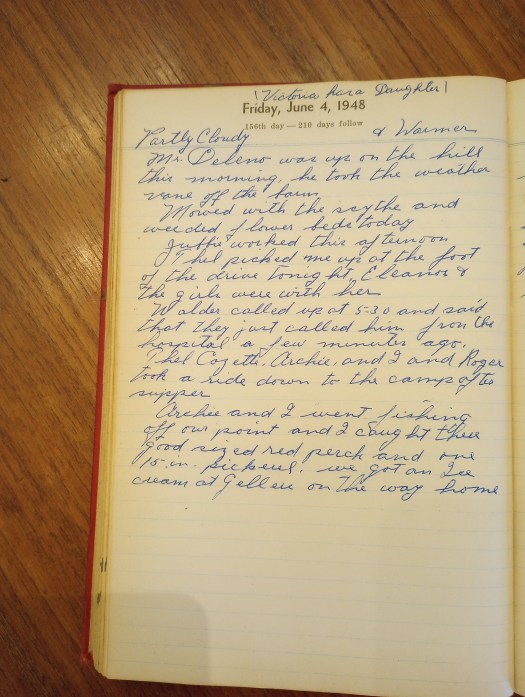 (Victoria has a Daughter)
Friday, June 4, 1948
156th day — 210 days follow
Partly Cloudy & Warmer
Mr. Deleno was up on the hill
this morning, he took the weather
vane off the barn
Mowed with the scythe and
weeded flower beds today
worked this afternoon
Thel picked me up at the foot
of the drive tonight, Eleanor &
the girls were with her
Walder called up at 5-30 and said
that they just called him from the
hospital a few minutes ago.
Thel Cozette, Archie, and I and Roger
took a ride down to the camp after
supper
Archie and I went fishing
off our point and I caught three
good sized red perch and one
15-in. pickerel. we got an Ice
cream at on the way home